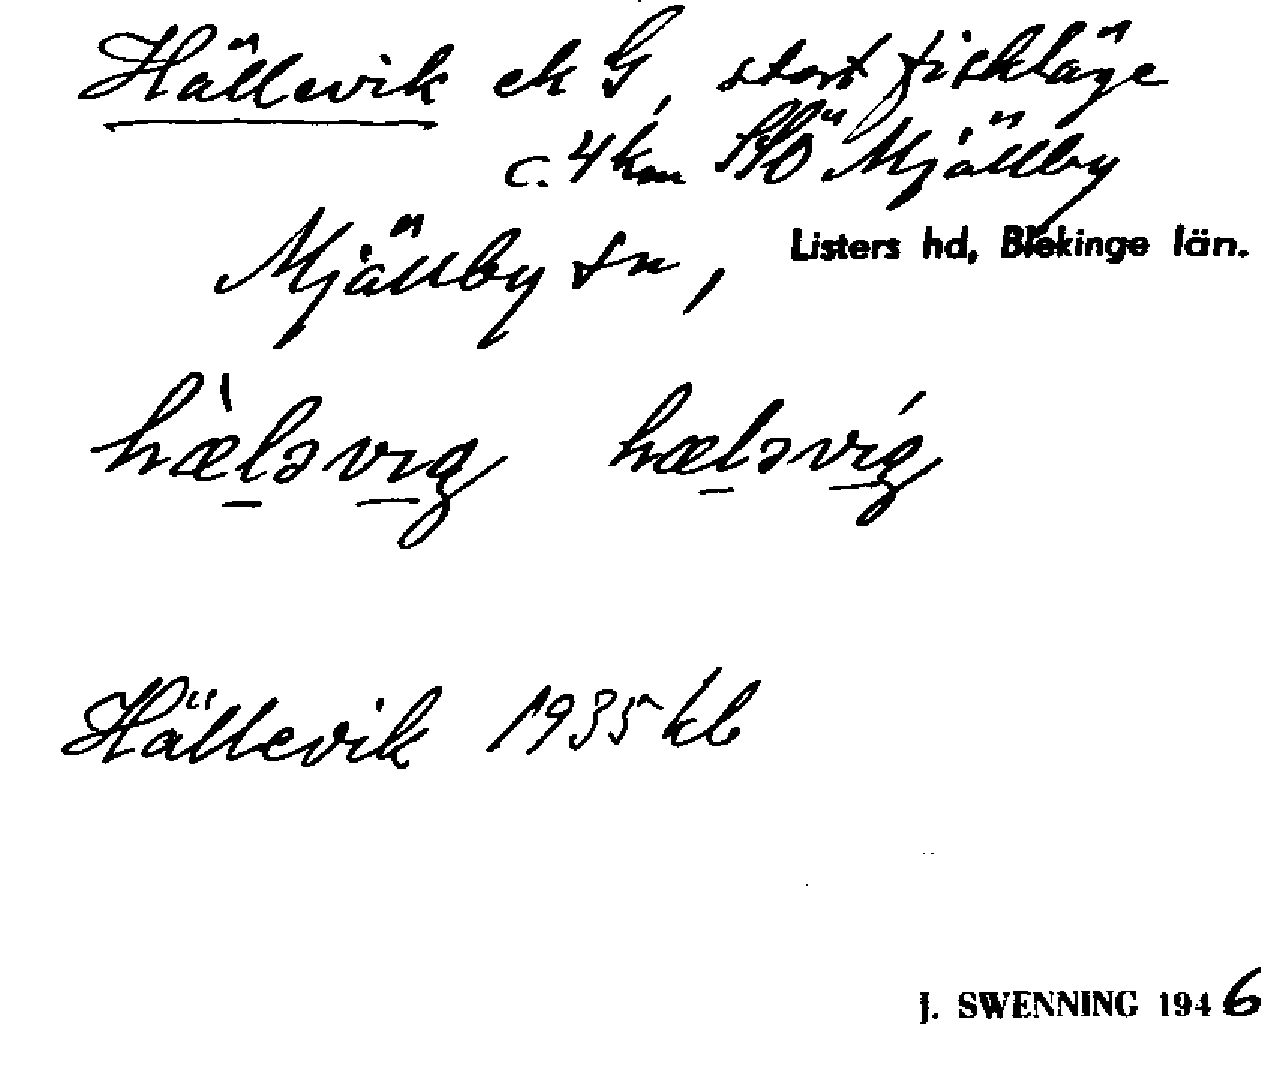 Hällevik ek G, stort fiskläge
c. 4 km SSÖ Mjällby
Mjällby sn, Listers hd, Blekinge län.
hæ̀ləvıg hæləvı́g
Hällevik 1935 kb
J. SWENNING 1946